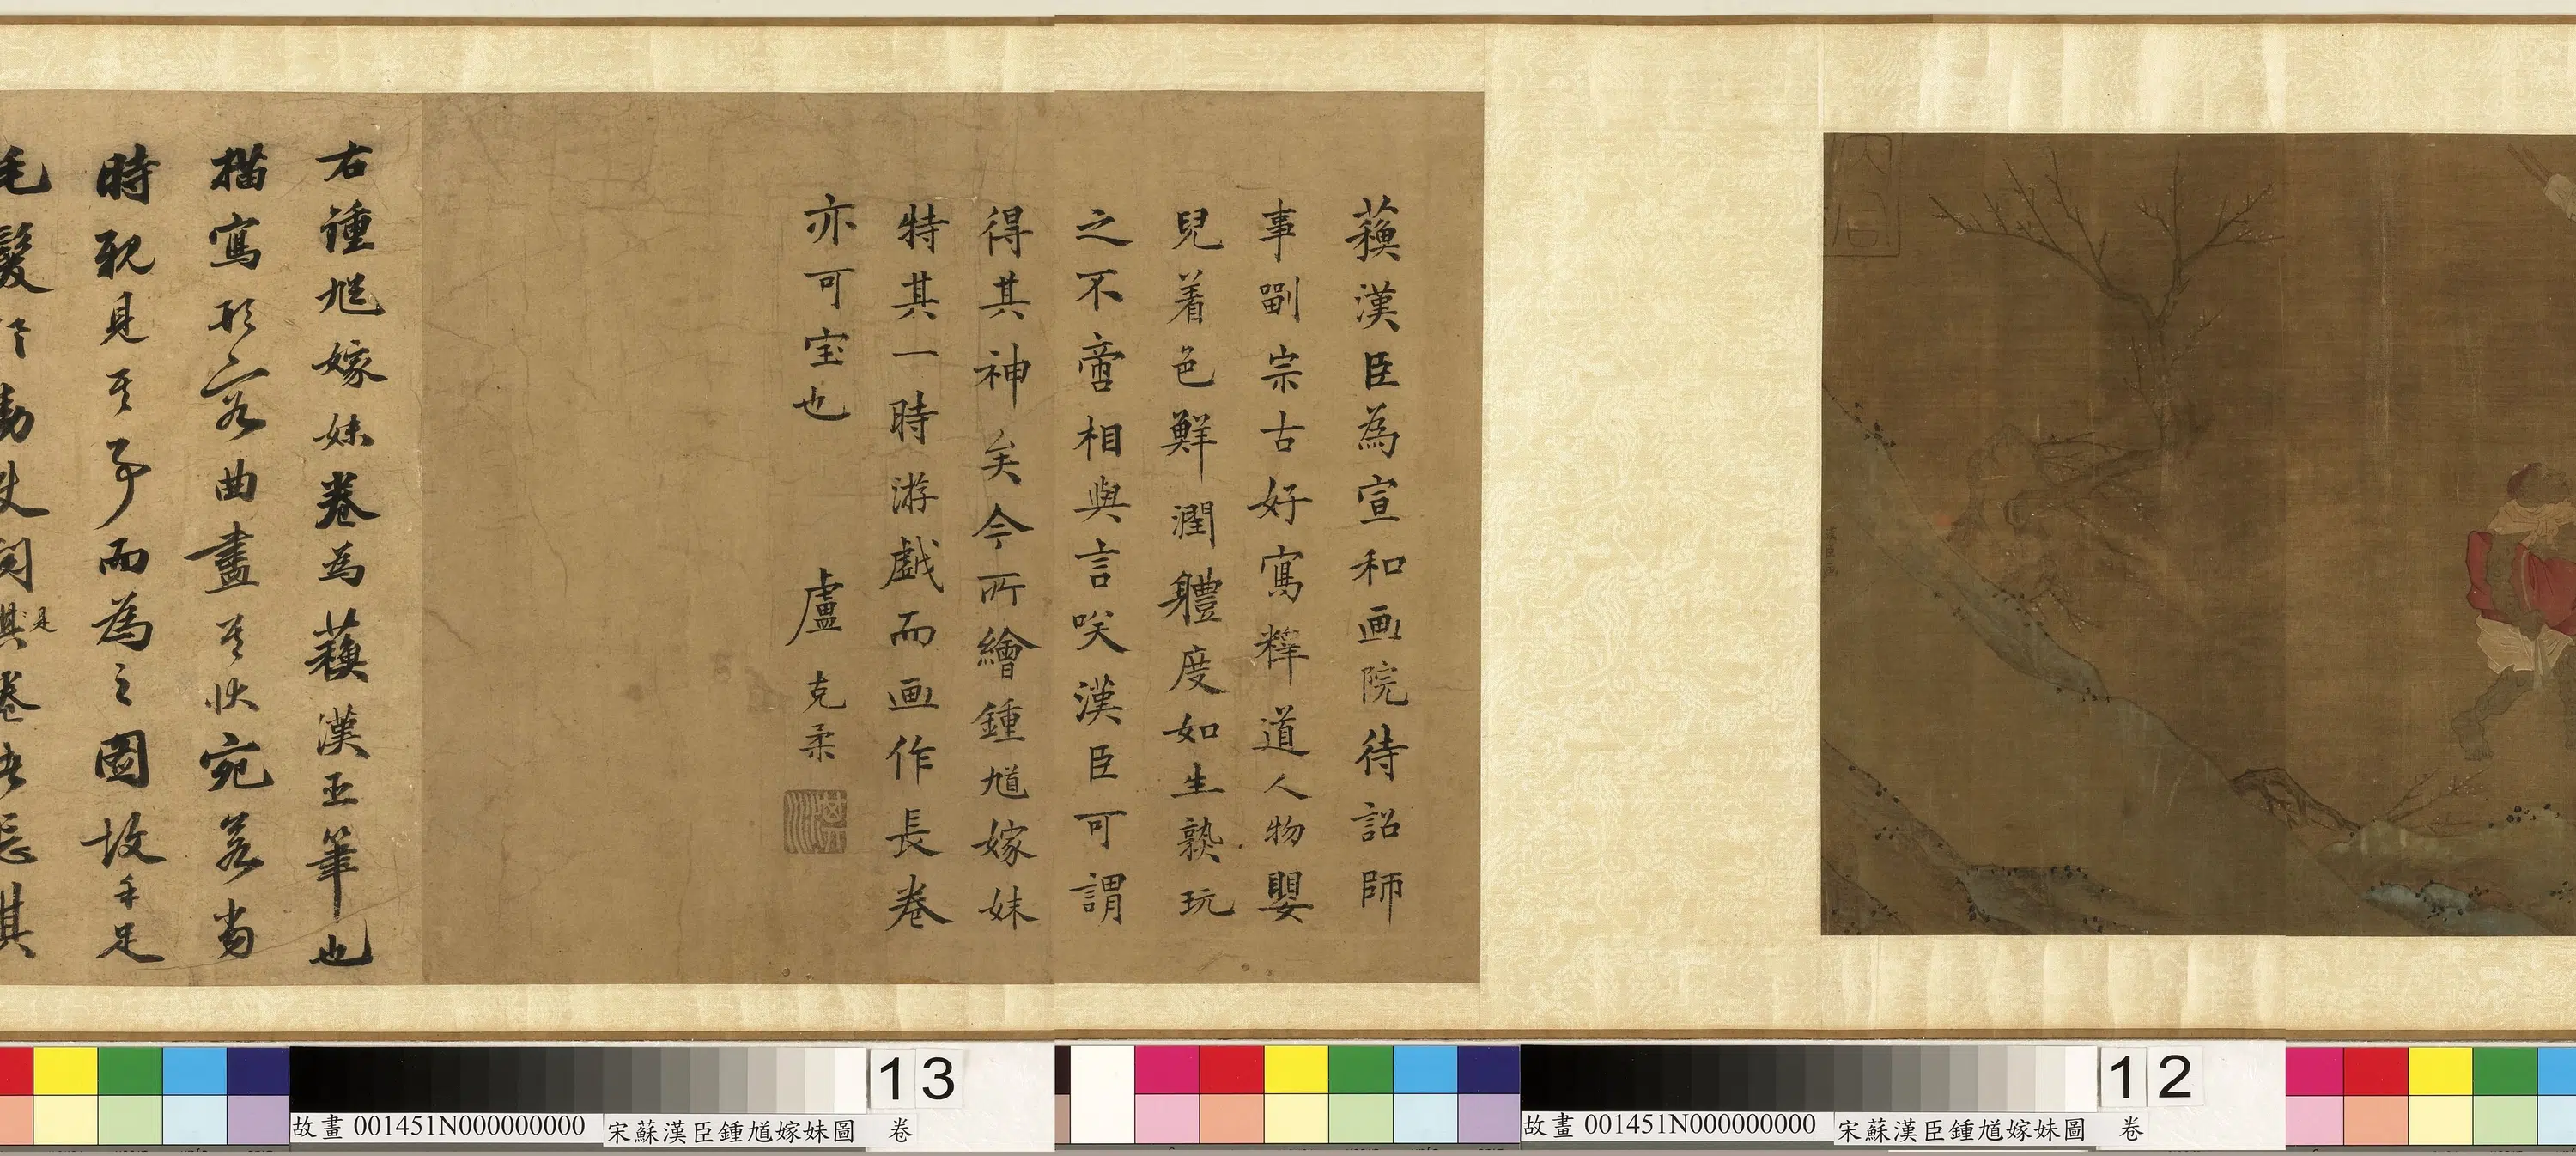 蘓漢臣為宣和画院待詔師
事劉宗古好寫釋道人物嬰
兒着色鮮潤軆度如生熟玩
之不啻相與言咲漢臣可謂
得其神矣今所繪鍾馗嫁妹
特其一時游戲而画作長卷
亦可宝也 盧克柔
右鍾馗嫁妹卷為蘓漢臣筆也
描寫形容曲盡其狀宛若當
時親見其事而為之圖故手足
毛髮
其卷
其
13
故畫 001451N000000000 宋蘇漢臣鍾馗嫁妹圖 卷
12
故畫 001451N000000000 宋蘇漢臣鍾馗嫁妹圖 卷